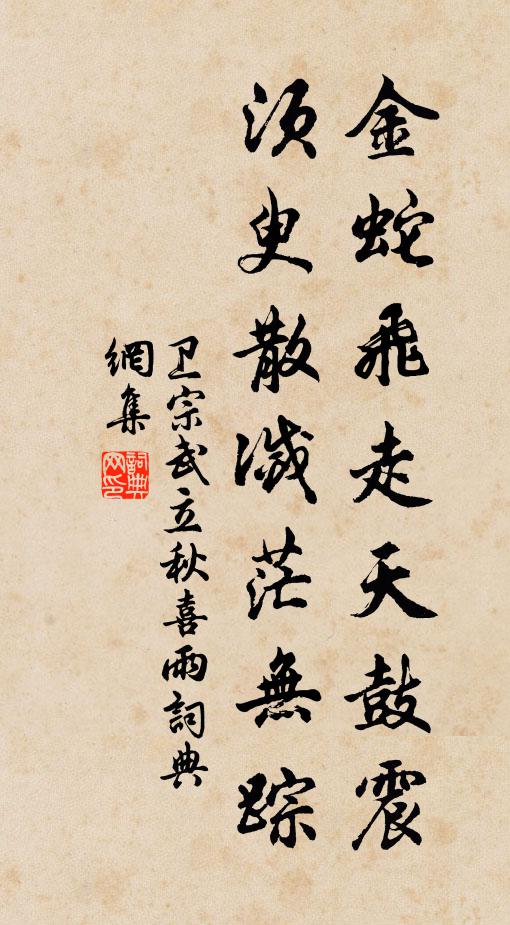 金蛇飛走天鼓震
須臾散滅茫無踪
卫宗武立秋喜雨詞典
網集
詞典網印